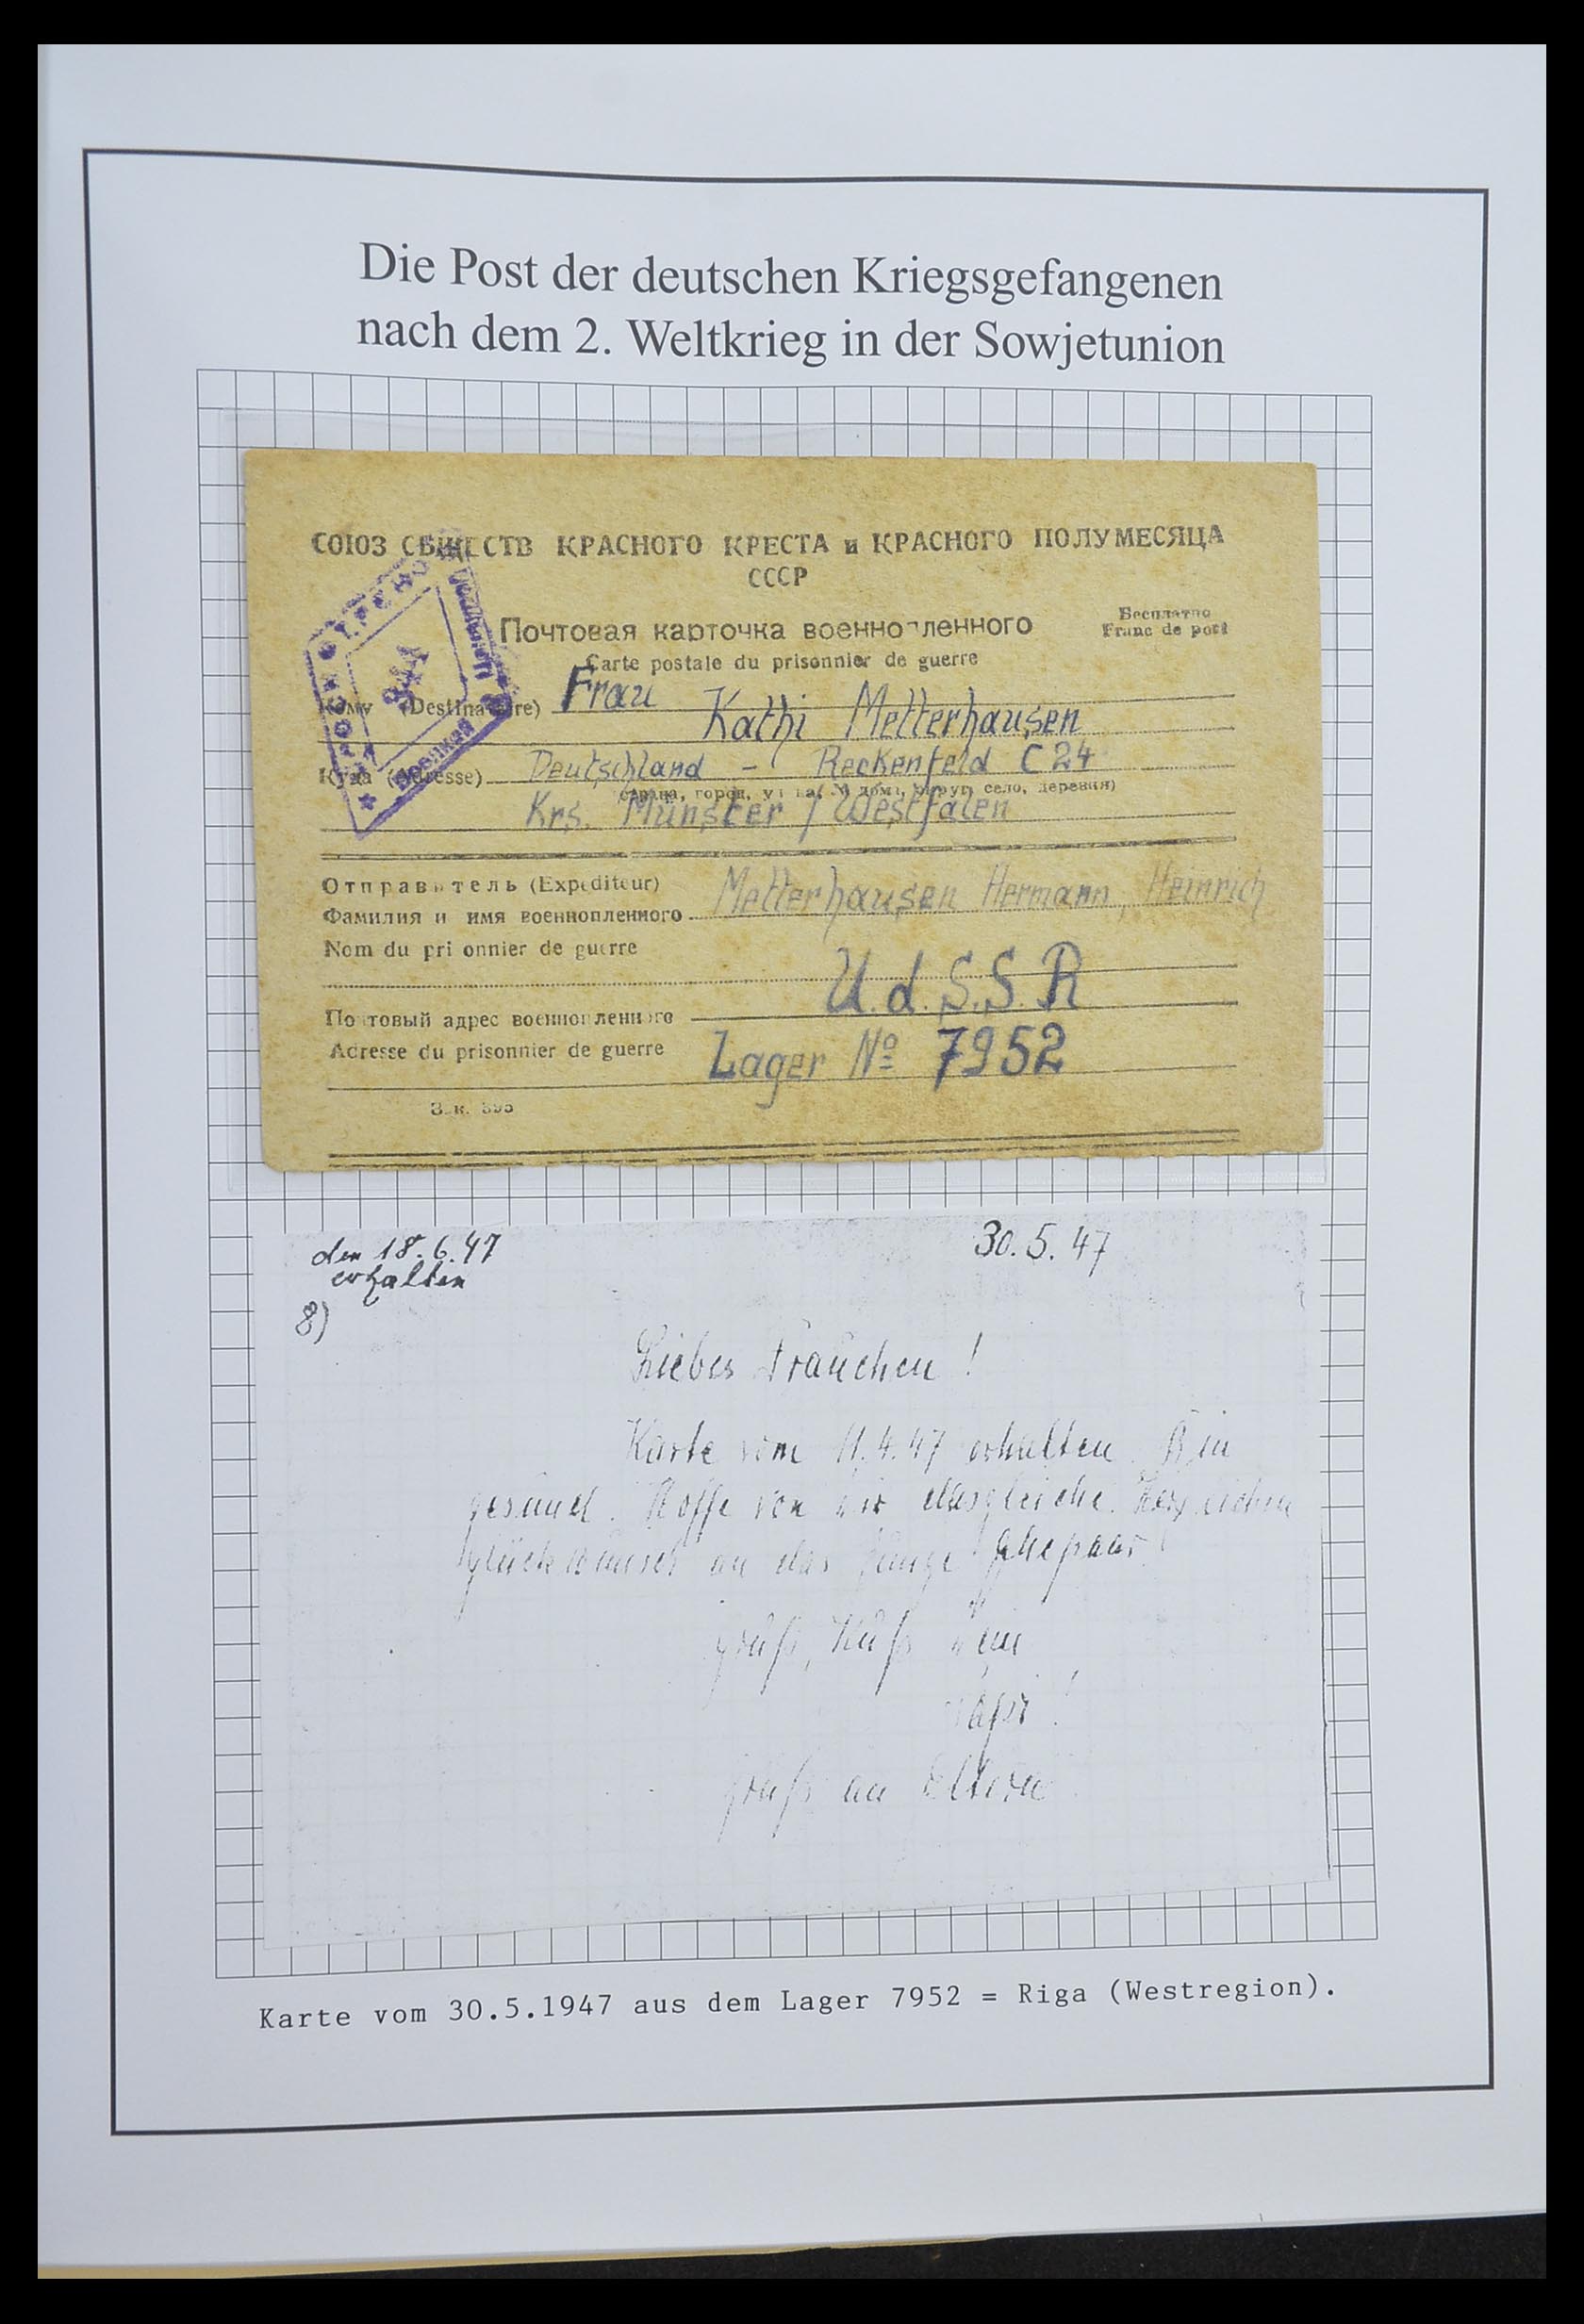 Die Post der deutschen Kriegsgefangenen
nach dem 2. Weltkrieg in der Sowjetunion
СОЮЗ ОБЩЕСТВ КРАСНОГО КРЕСТА и КРАСНОГО ПОЛУМЕСЯЦА
СССР
Почтовая карточка военнопленного
Бесплатно
Franc de port
Carte postale du prisonnier de guerre
Кому (Destinataire) Frau
Kathi Metterhausen
Куда (Adresse) Deutschland - Reckenfeld C 24
село, деревня)
Krs. Münster / Westfalen
Военная
Отправитель (Expéditeur)
Фамилия и имя военнопленного Metterhausen Hermann, Heinrich
Nom du prisonnier de guerre
U.d.S.S.R
Почтовый адрес военнопленного
Adresse du prisonnier de guerre
Lager № 7952
den 18.6.47
erhalten
8)
30.5.47
Liebes Frauchen!
Karte vom 11.4.47 erhalten. Bin
gesund. Hoffe von dir dasgleiche. Herzlichen
Glückwunsch an das junge Ehepaar!
Gruß, Kuß dein
Gruß an Eltern
Karte vom 30.5.1947 aus dem Lager 7952 = Riga (Westregion).